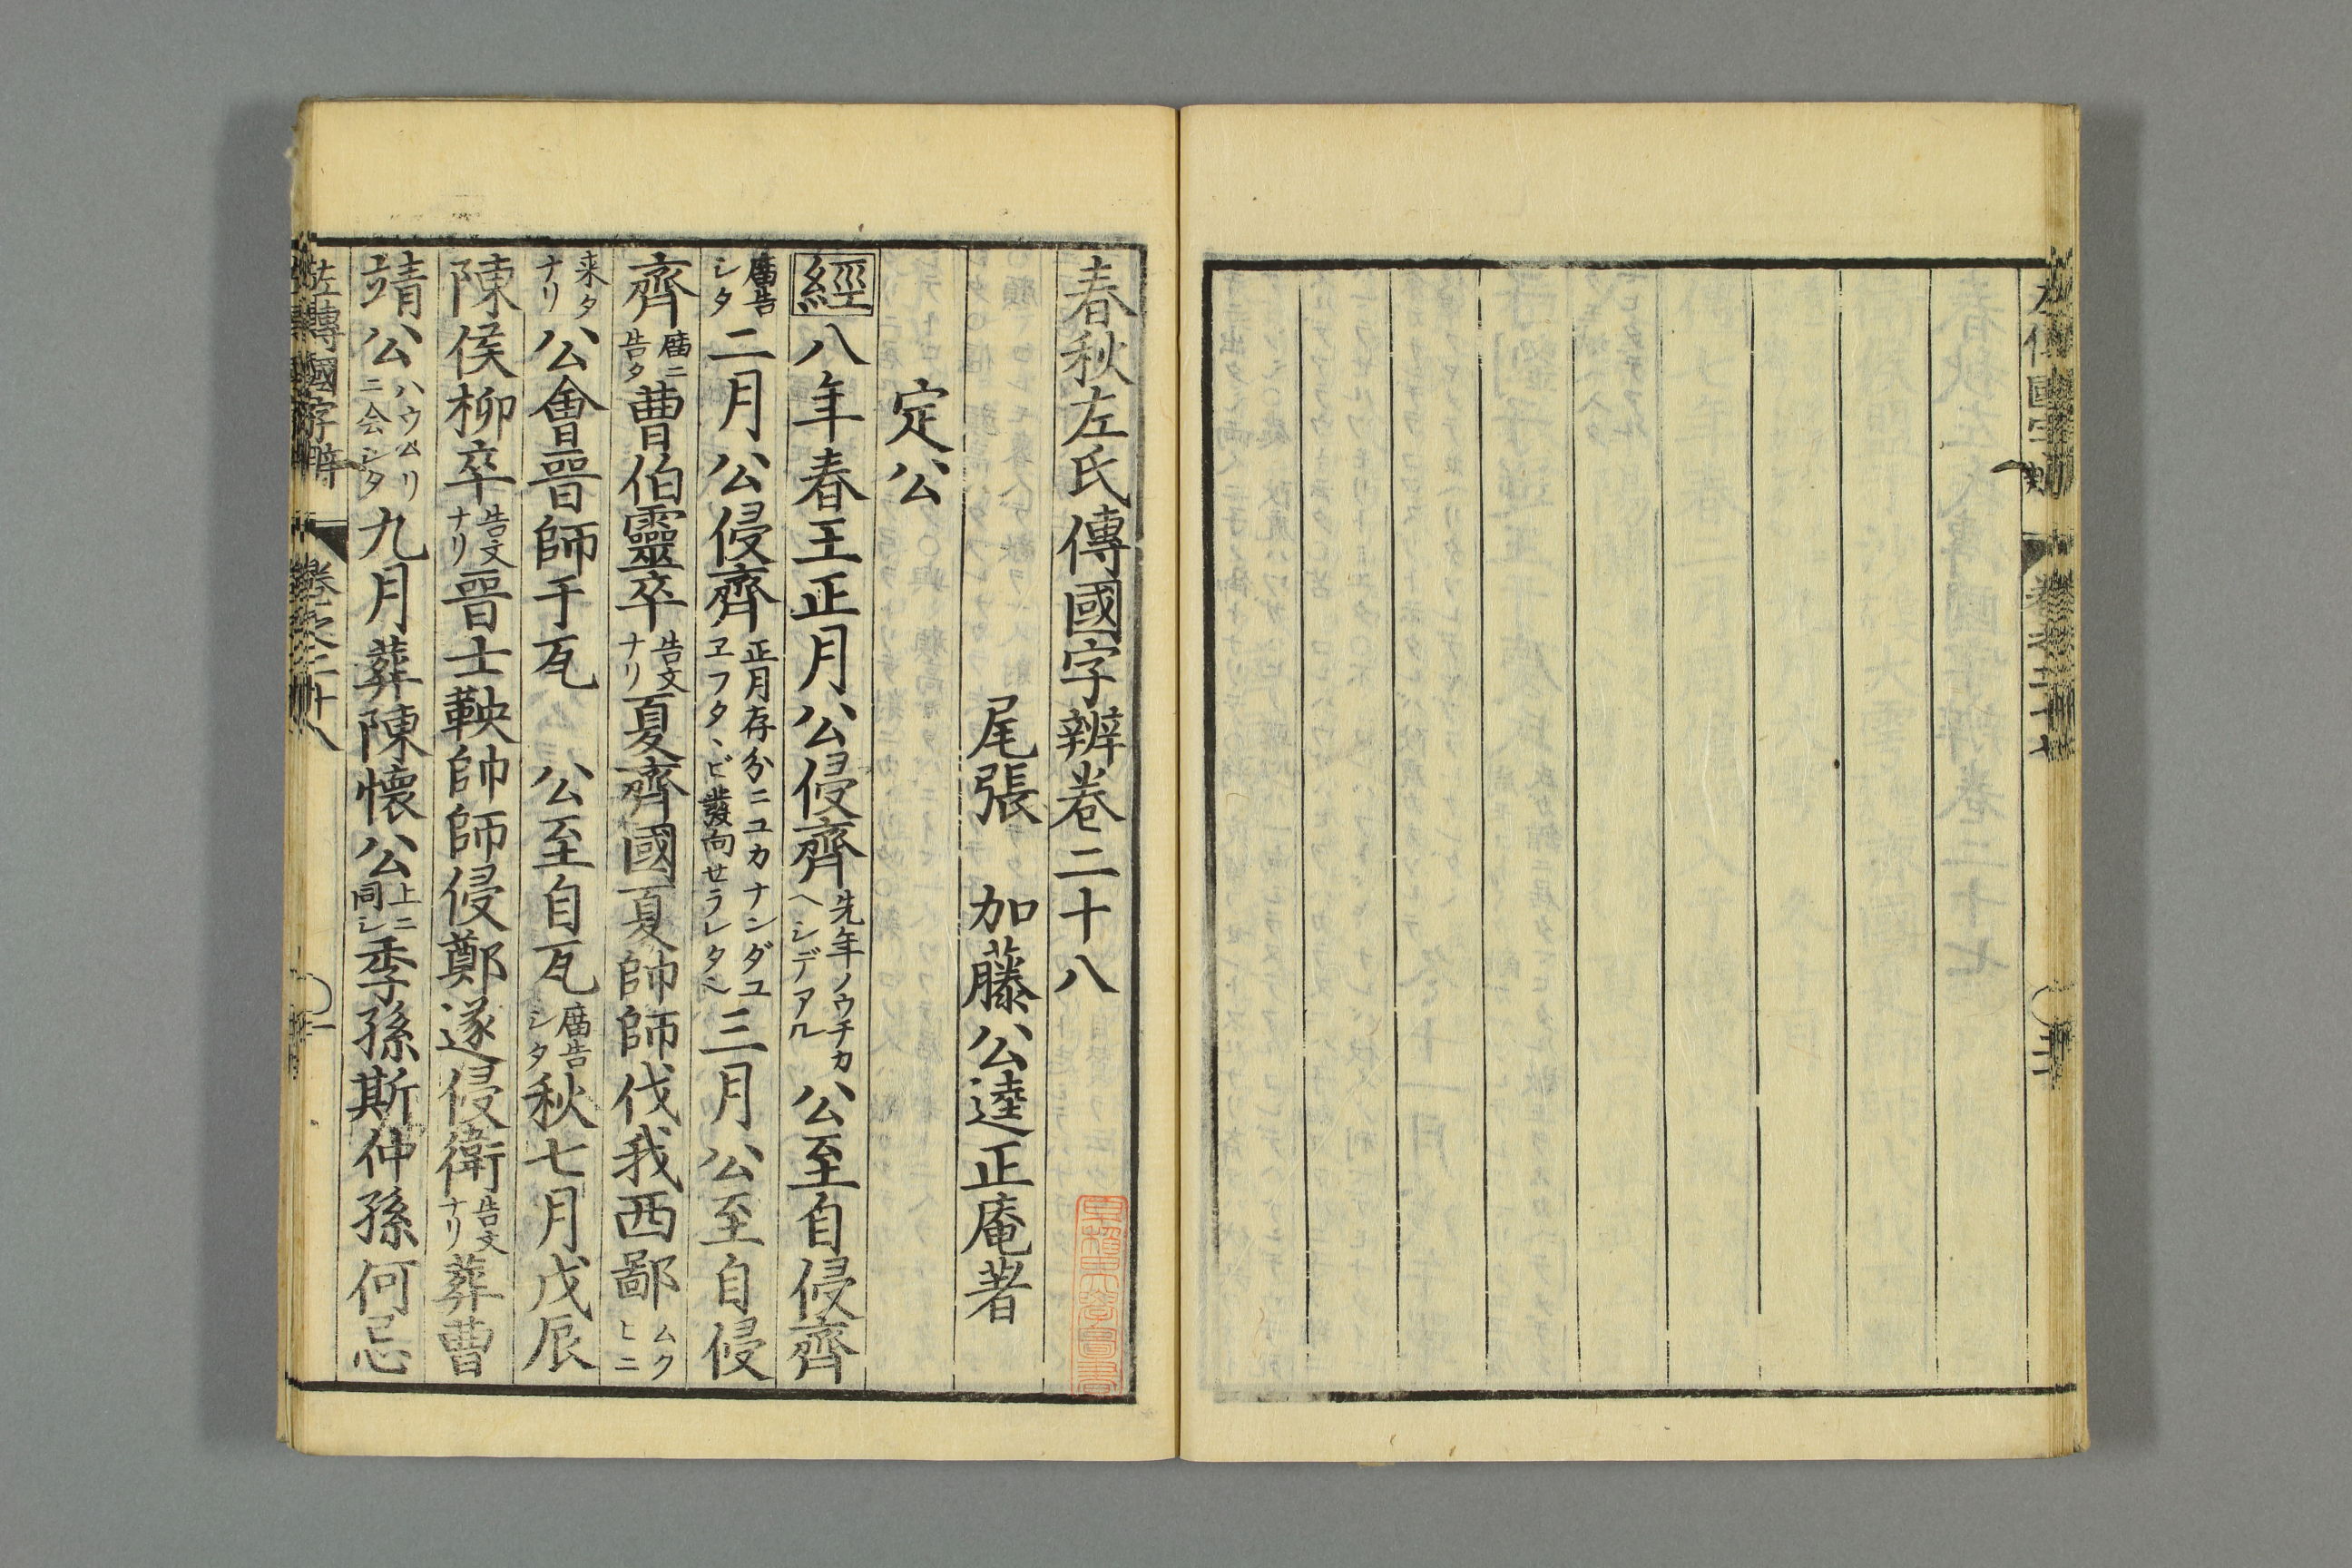 春秋左氏傳國字辨卷二十八
尾張 加藤公逵正庵著
定公
經八年春王正月公侵齊先年ノウチカヘシデアル公至自侵齊
廣告シタ二月公侵齊正月存分ニユカナンダユヱフタヽビ發向セラレタ三月公至自侵
齊廟ニ告タ曹伯靈卒告文ナリ夏齊國夏帥師伐我西鄙ムクヒニ
来タナリ公會晉師于瓦 公至自瓦廣告シタ秋七月戊辰
陳侯柳卒告文ナリ晉士鞅帥師侵鄭遂侵衛告文ナリ葬曹
靖公ハウムリニ会シタ九月葬陳懷公上ニ同シ季孫斯仲孫何忌
左傳國字辨 卷之二十八 一